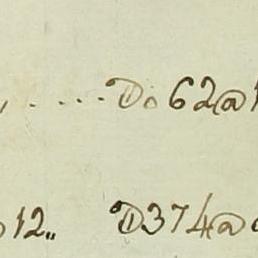 .... Do 62@
12,, D374@